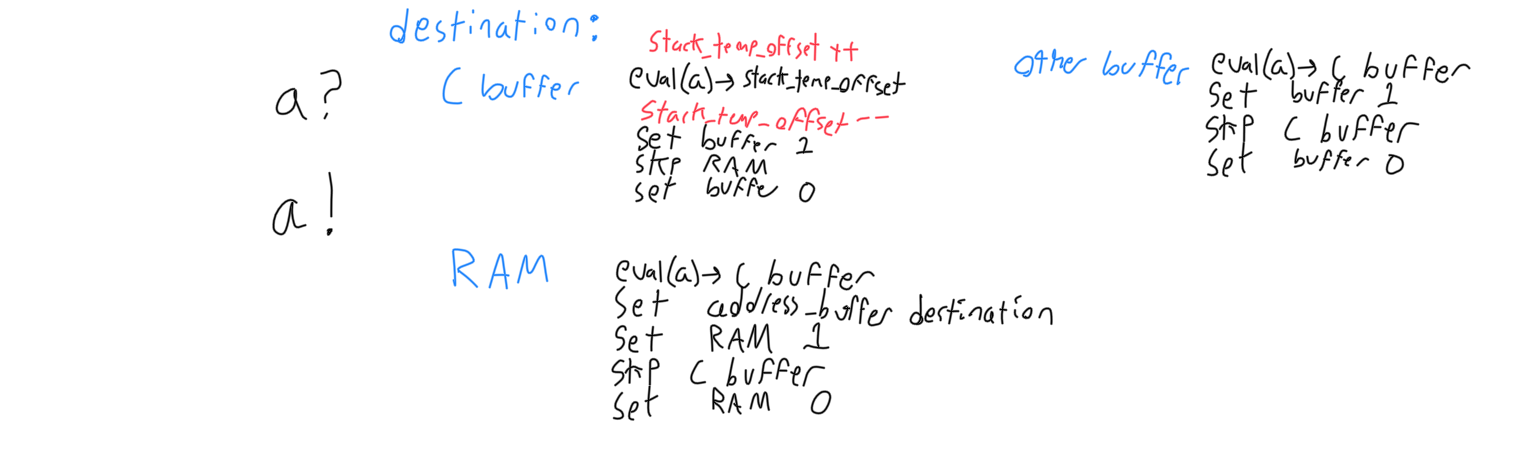 destination:
a?
a!
C buffer
Stack_temp_offset ++
eval(a)→ stack_temp_offset
Stack_temp_offset --
Set buffer 1
skp RAM
set buffe 0
other buffer
eval(a)→ C buffer
Set buffer 1
skp C buffer
Set buffer 0
RAM
eval(a)→ C buffer
Set address_buffer destination
Set RAM 1
skp C buffer
Set RAM 0